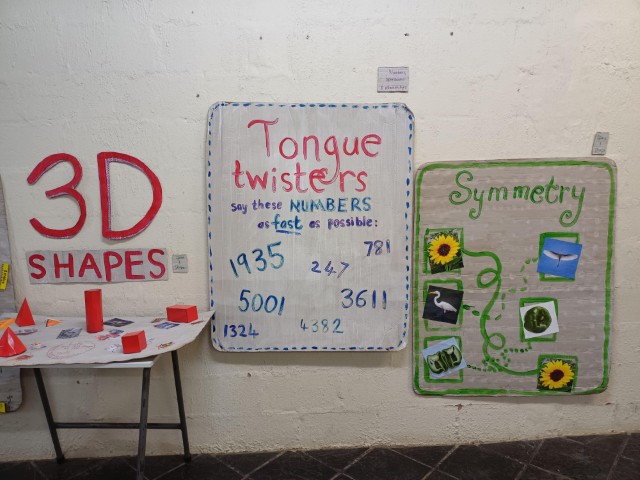 3D
SHAPES
Tongue
twisters
say these NUMBERS
as fast as possible:
1935
247
781
5001
3611
1324
4382
Symmetry